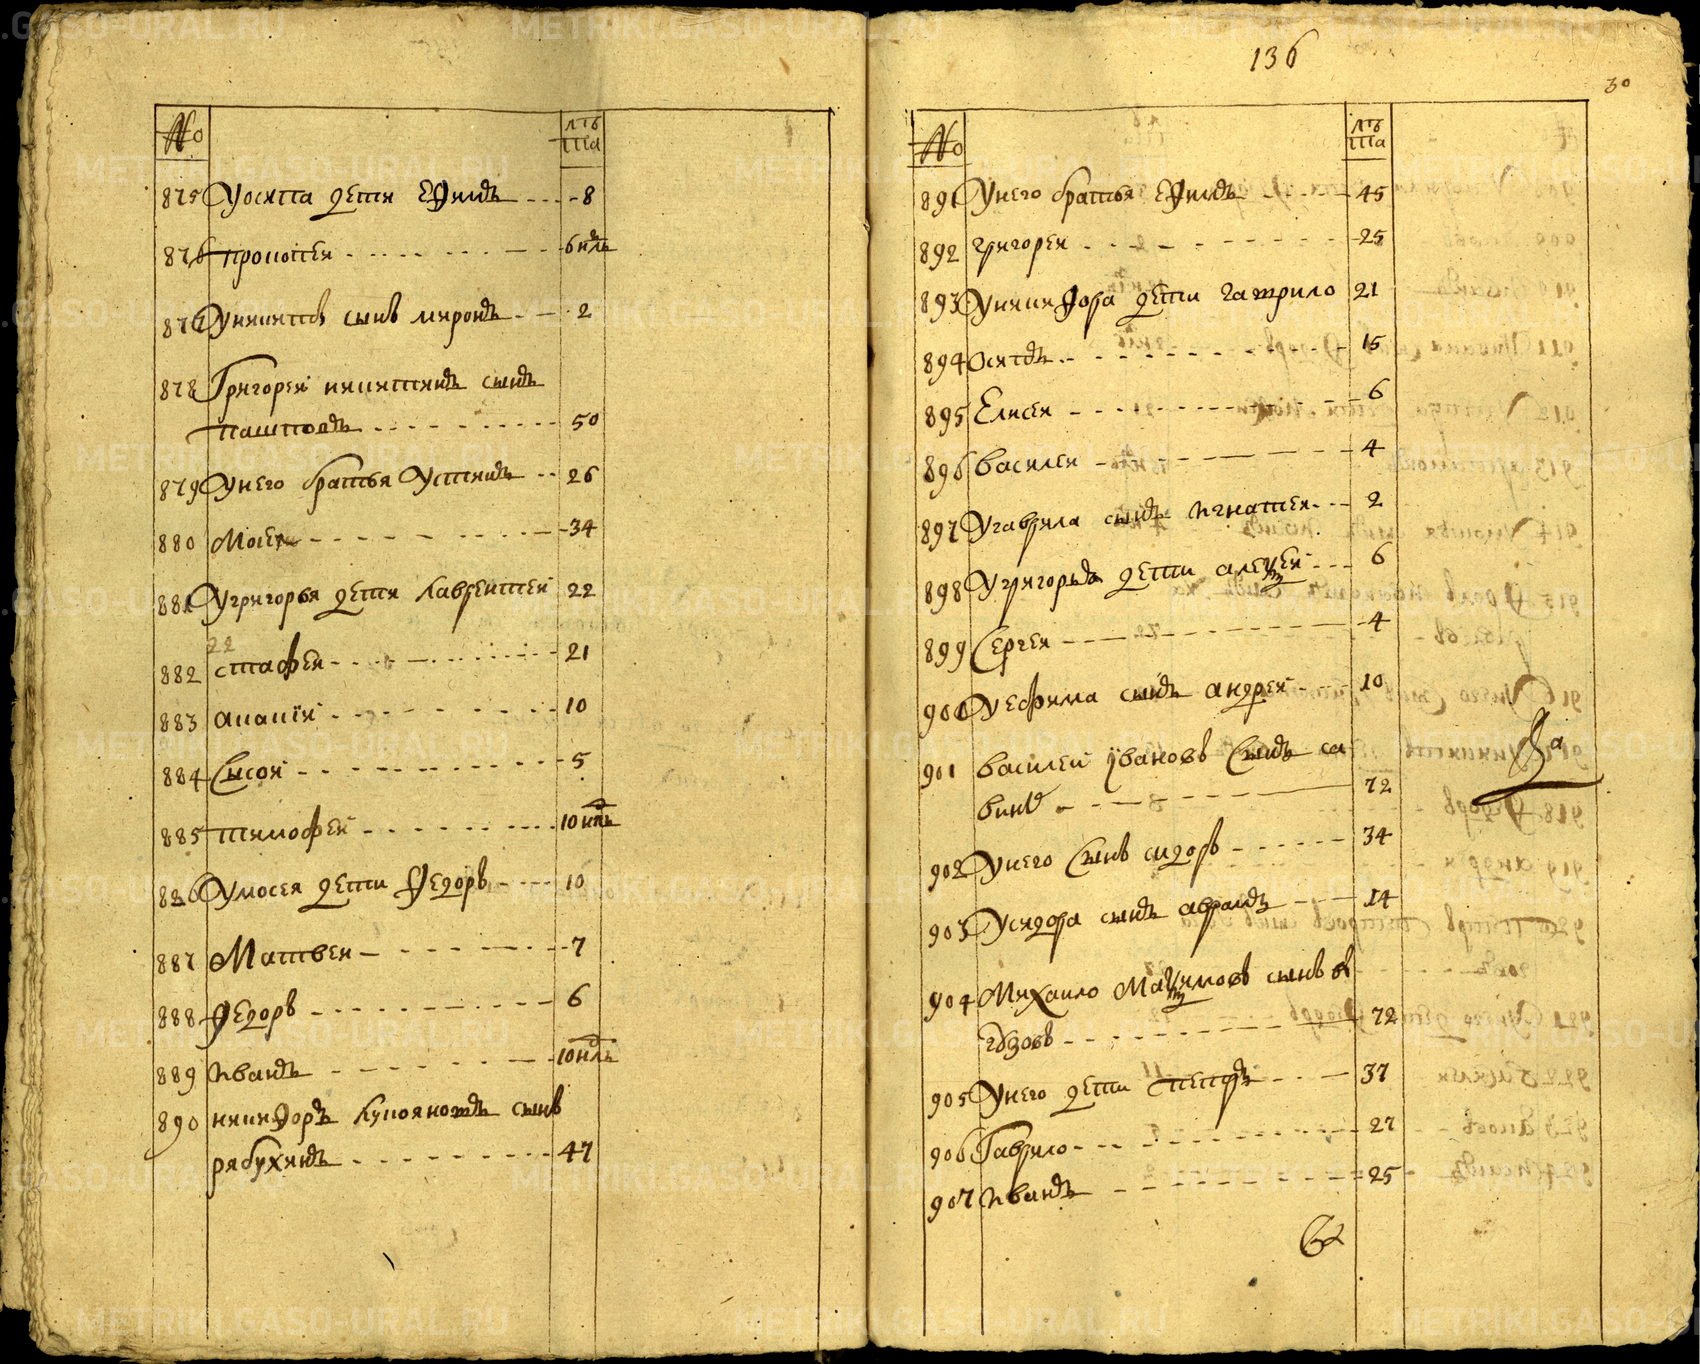 № лѣта
875 У осипа дети ефимъ 8
876 прокопеи 6 ндль
877 У никиты сынъ миронъ 2
878 Григореи никитинъ сынъ
пашковъ 50
879 У него братья Устинъ 26
880 Мосеи 34
881 У григорья дети лаврентеи 22
22
882 стафеи 21
883 ананiи 10
884 Сысои 5
885 тимофеи 10 нлъ
886 У мосея дети федоръ 10
887 Матвеи 7
888 федоръ 6
889 иванъ 10 ндль
890 никифоръ сынъ
рябухинъ 47
136
30
№ лѣта
891 У него братья ефимъ 45
892 григореи 25
893 У никифора дети гаврило 21
894 осипъ 15
895 Елисеи 6
896 василеи 4
897 У гаврила сынъ игнатеи 2
898 У григорья дети алексеи 6
899 Сергеи 4
900 У ефима сынъ андреи 10
901 василеи iвановъ сынъ са
винъ 72
902 У него сынъ сидоръ 34
903 У сидора сынъ аврамъ 14
904 Михаило Максимовъ сынъ
72
905 У него дети петръ 37
906 Гаврило 27
907 иванъ 25